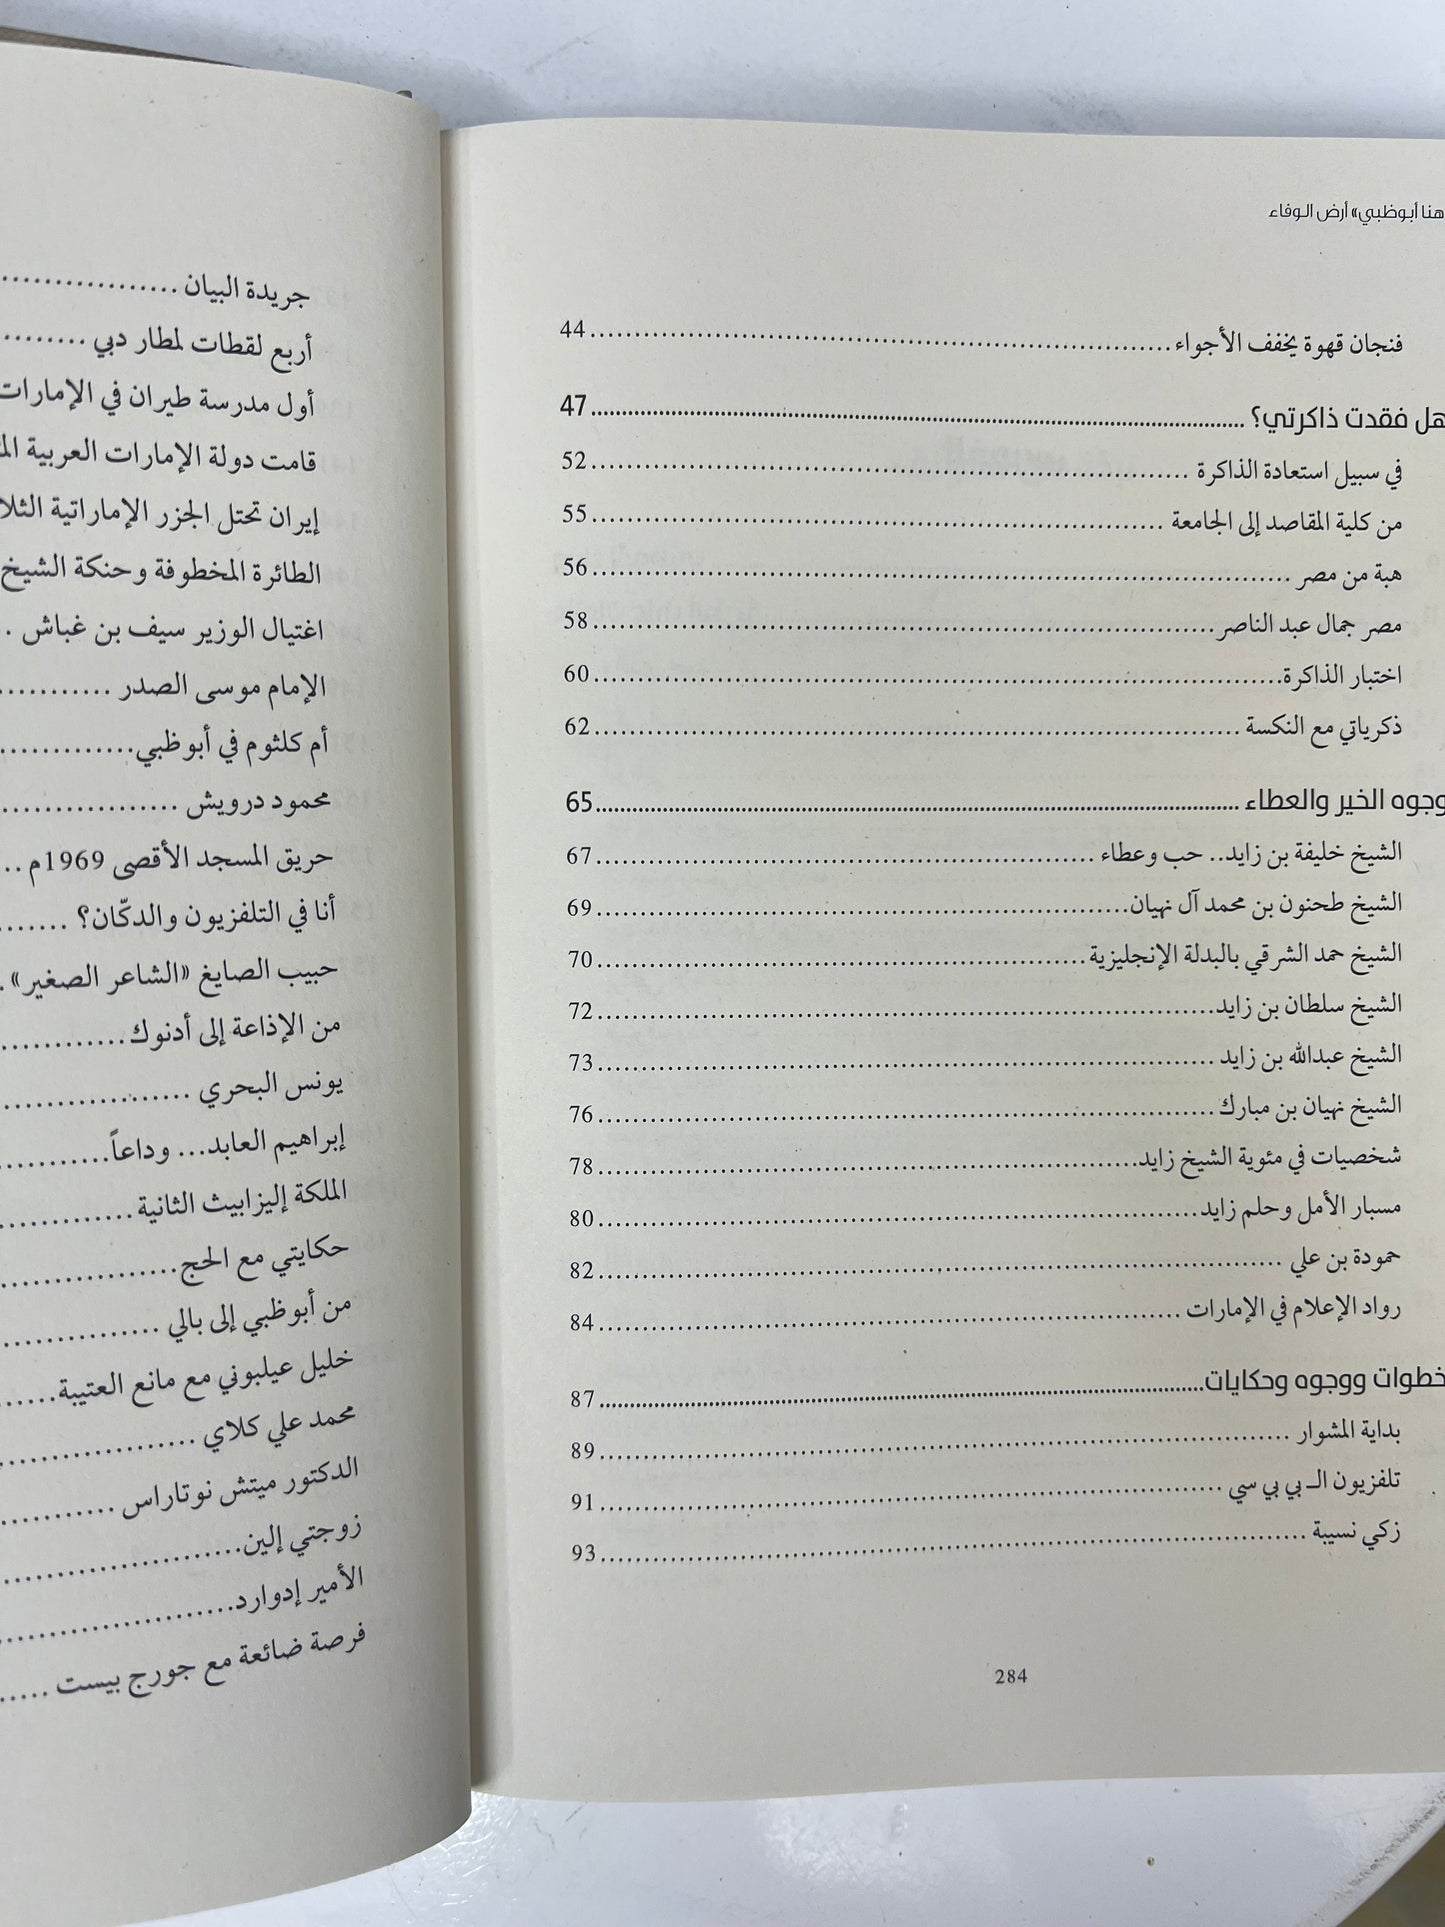 هنا أبوظبي» أرض الوفاء
فنجان قهوة يخفف الأجواء ........ 44
هل فقدت ذاكرتي؟ ........ 47
في سبيل استعادة الذاكرة ........ 52
من كلية المقاصد إلى الجامعة ........ 55
هبة من مصر ........ 56
مصر جمال عبد الناصر ........ 58
اختبار الذاكرة ........ 60
ذكرياتي مع النكسة ........ 62
وجوه الخير والعطاء ........ 65
الشيخ خليفة بن زايد.. حب وعطاء ........ 67
الشيخ طحنون بن محمد آل نهيان ........ 69
الشيخ حمد الشرقي بالبدلة الإنجليزية ........ 70
الشيخ سلطان بن زايد ........ 72
الشيخ عبدالله بن زايد ........ 73
الشيخ نهيان بن مبارك ........ 76
شخصيات في مئوية الشيخ زايد ........ 78
مسبار الأمل وحلم زايد ........ 80
حمودة بن علي ........ 82
رواد الإعلام في الإمارات ........ 84
خطوات ووجوه وحكايات ........ 87
بداية المشوار ........ 89
تلفزيون الـ بي بي سي ........ 91
زكي نسيبة ........ 93
284
جريدة البيان ........
أربع لقطات لمطار دبي ........
أول مدرسة طيران في الإمارات
قامت دولة الإمارات العربية
إيران تحتل الجزر الإماراتية
الطائرة المخطوفة وحنكة الشيخ
اغتيال الوزير سيف بن غباش ..
الإمام موسى الصدر ........
أم كلثوم في أبوظبي ........
محمود درويش ........
حريق المسجد الأقصى 1969م ..
أنا في التلفزيون والدكّان؟ ........
حبيب الصايغ «الشاعر الصغير» .
من الإذاعة إلى أدنوك ........
يونس البحري ........
إبراهيم العابد... وداعاً ........
الملكة إليزابيث الثانية ........
حكايتي مع الحج ........
من أبوظبي إلى بالي ........
خليل عيلبوني مع مانع العتيبة ......
محمد علي كلاي ........
الدكتور ميتش نوتاراس ........
زوجتي إلين ........
الأمير إدوارد ........
فرصة ضائعة مع جورج بيست .....